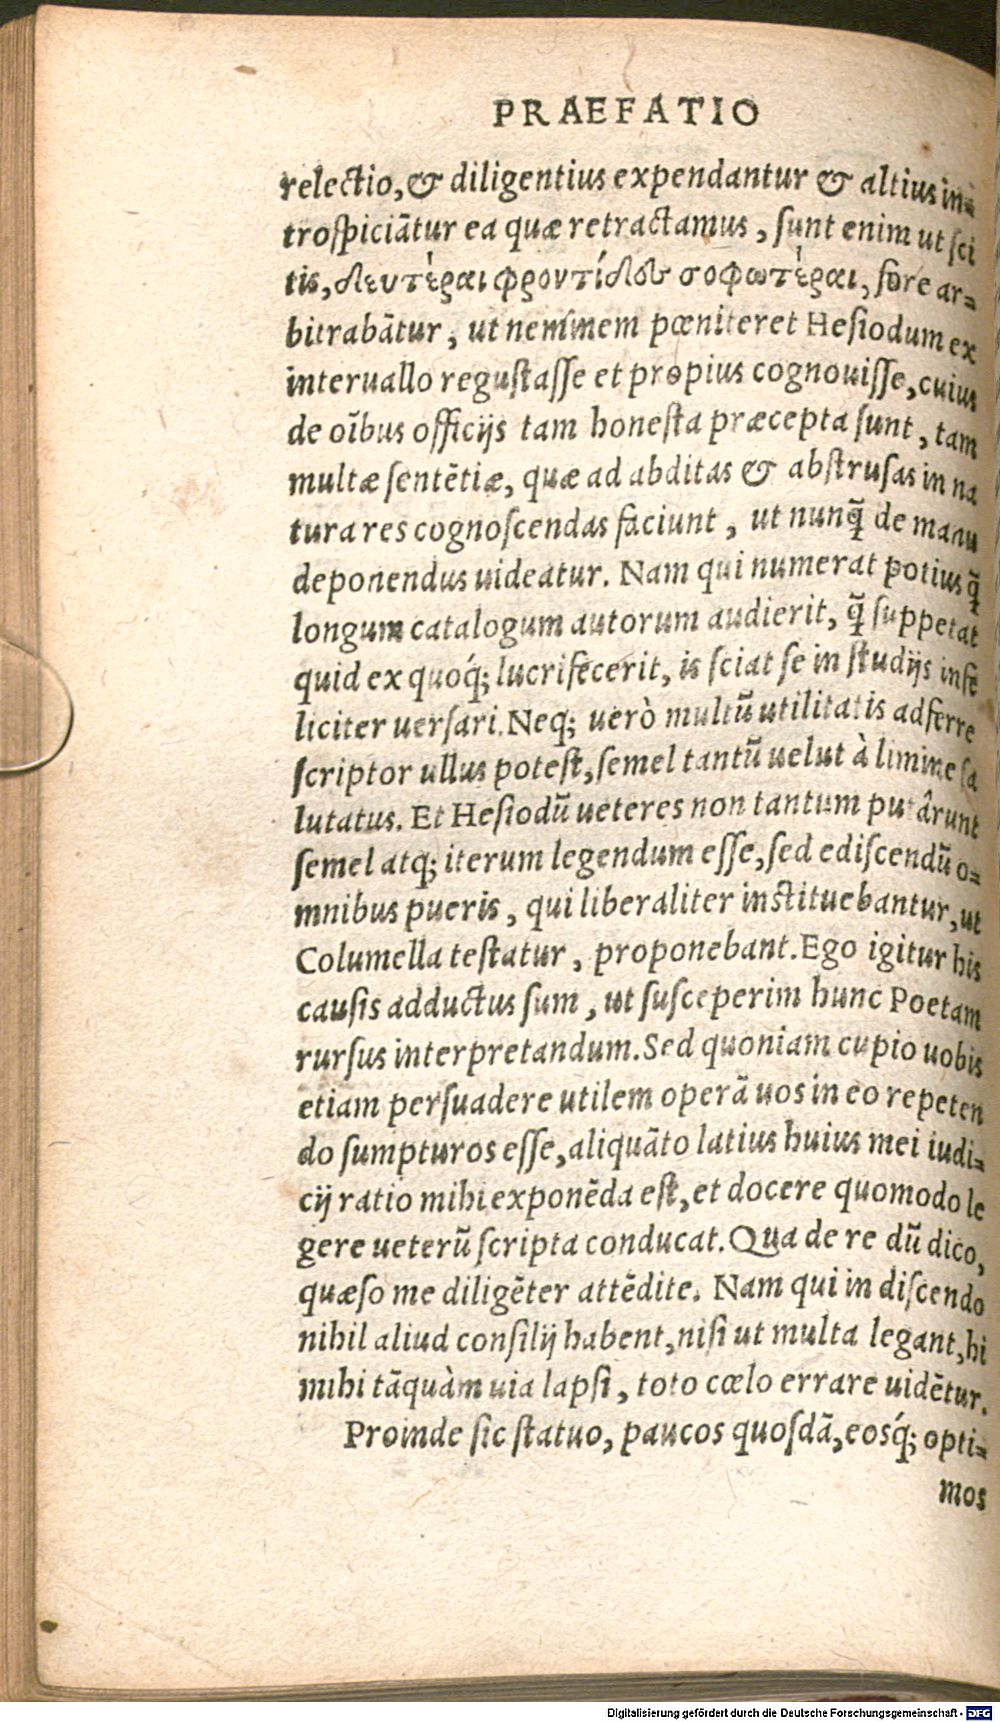 PRAEFATIO
relectio, & diligentius expendantur & altius in-
trospiciātur ea quæ retractamus, sunt enim ut sci
tis, δευτέραι φροντίδες σοφωτέραι, fore ar-
bitrabātur, ut neminem pœniteret Hesiodum ex
interuallo regustasse et propius cognouisse, cuius
de oībus officijs tam honesta præcepta sunt, tam
multæ sentētiæ, quæ ad abditas & abstrusas in na
tura res cognoscendas faciunt, ut nunq̄ de manu
deponendus uideatur. Nam qui numerat potius q̄
longum catalogum autorum audierit, q̄ suppetat
quid ex quoq́; lucrifecerit, is sciat se in studijs infe
liciter uersari. Neq; uerò multū utilitatis adferre
scriptor ullus potest, semel tantū uelut à limine sa
lutatus. Et Hesiodū ueteres non tantum putârunt
semel atq; iterum legendum esse, sed ediscendū o-
mnibus pueris, qui liberaliter instituebantur, ut
Columella testatur, proponebant. Ego igitur his
causis adductus sum, ut susceperim hunc Poetam
rursus interpretandum. Sed quoniam cupio uobis
etiam persuadere utilem operā uos in eo repeten
do sumpturos esse, aliquāto latius huius mei iudi-
cij ratio mihi exponēda est, et docere quomodo le
gere ueterū scripta conducat. Qua de re dū dico,
quæso me diligēter attēdite. Nam qui in discendo
nihil aliud consilij habent, nisi ut multa legant, hi
mihi tāquàm uia lapsi, toto cœlo errare uidētur.
Proinde sic statuo, paucos quosdā, eosq́; opti-
mos
Digitalisierung gefördert durch die Deutsche Forschungsgemeinschaft - DFG